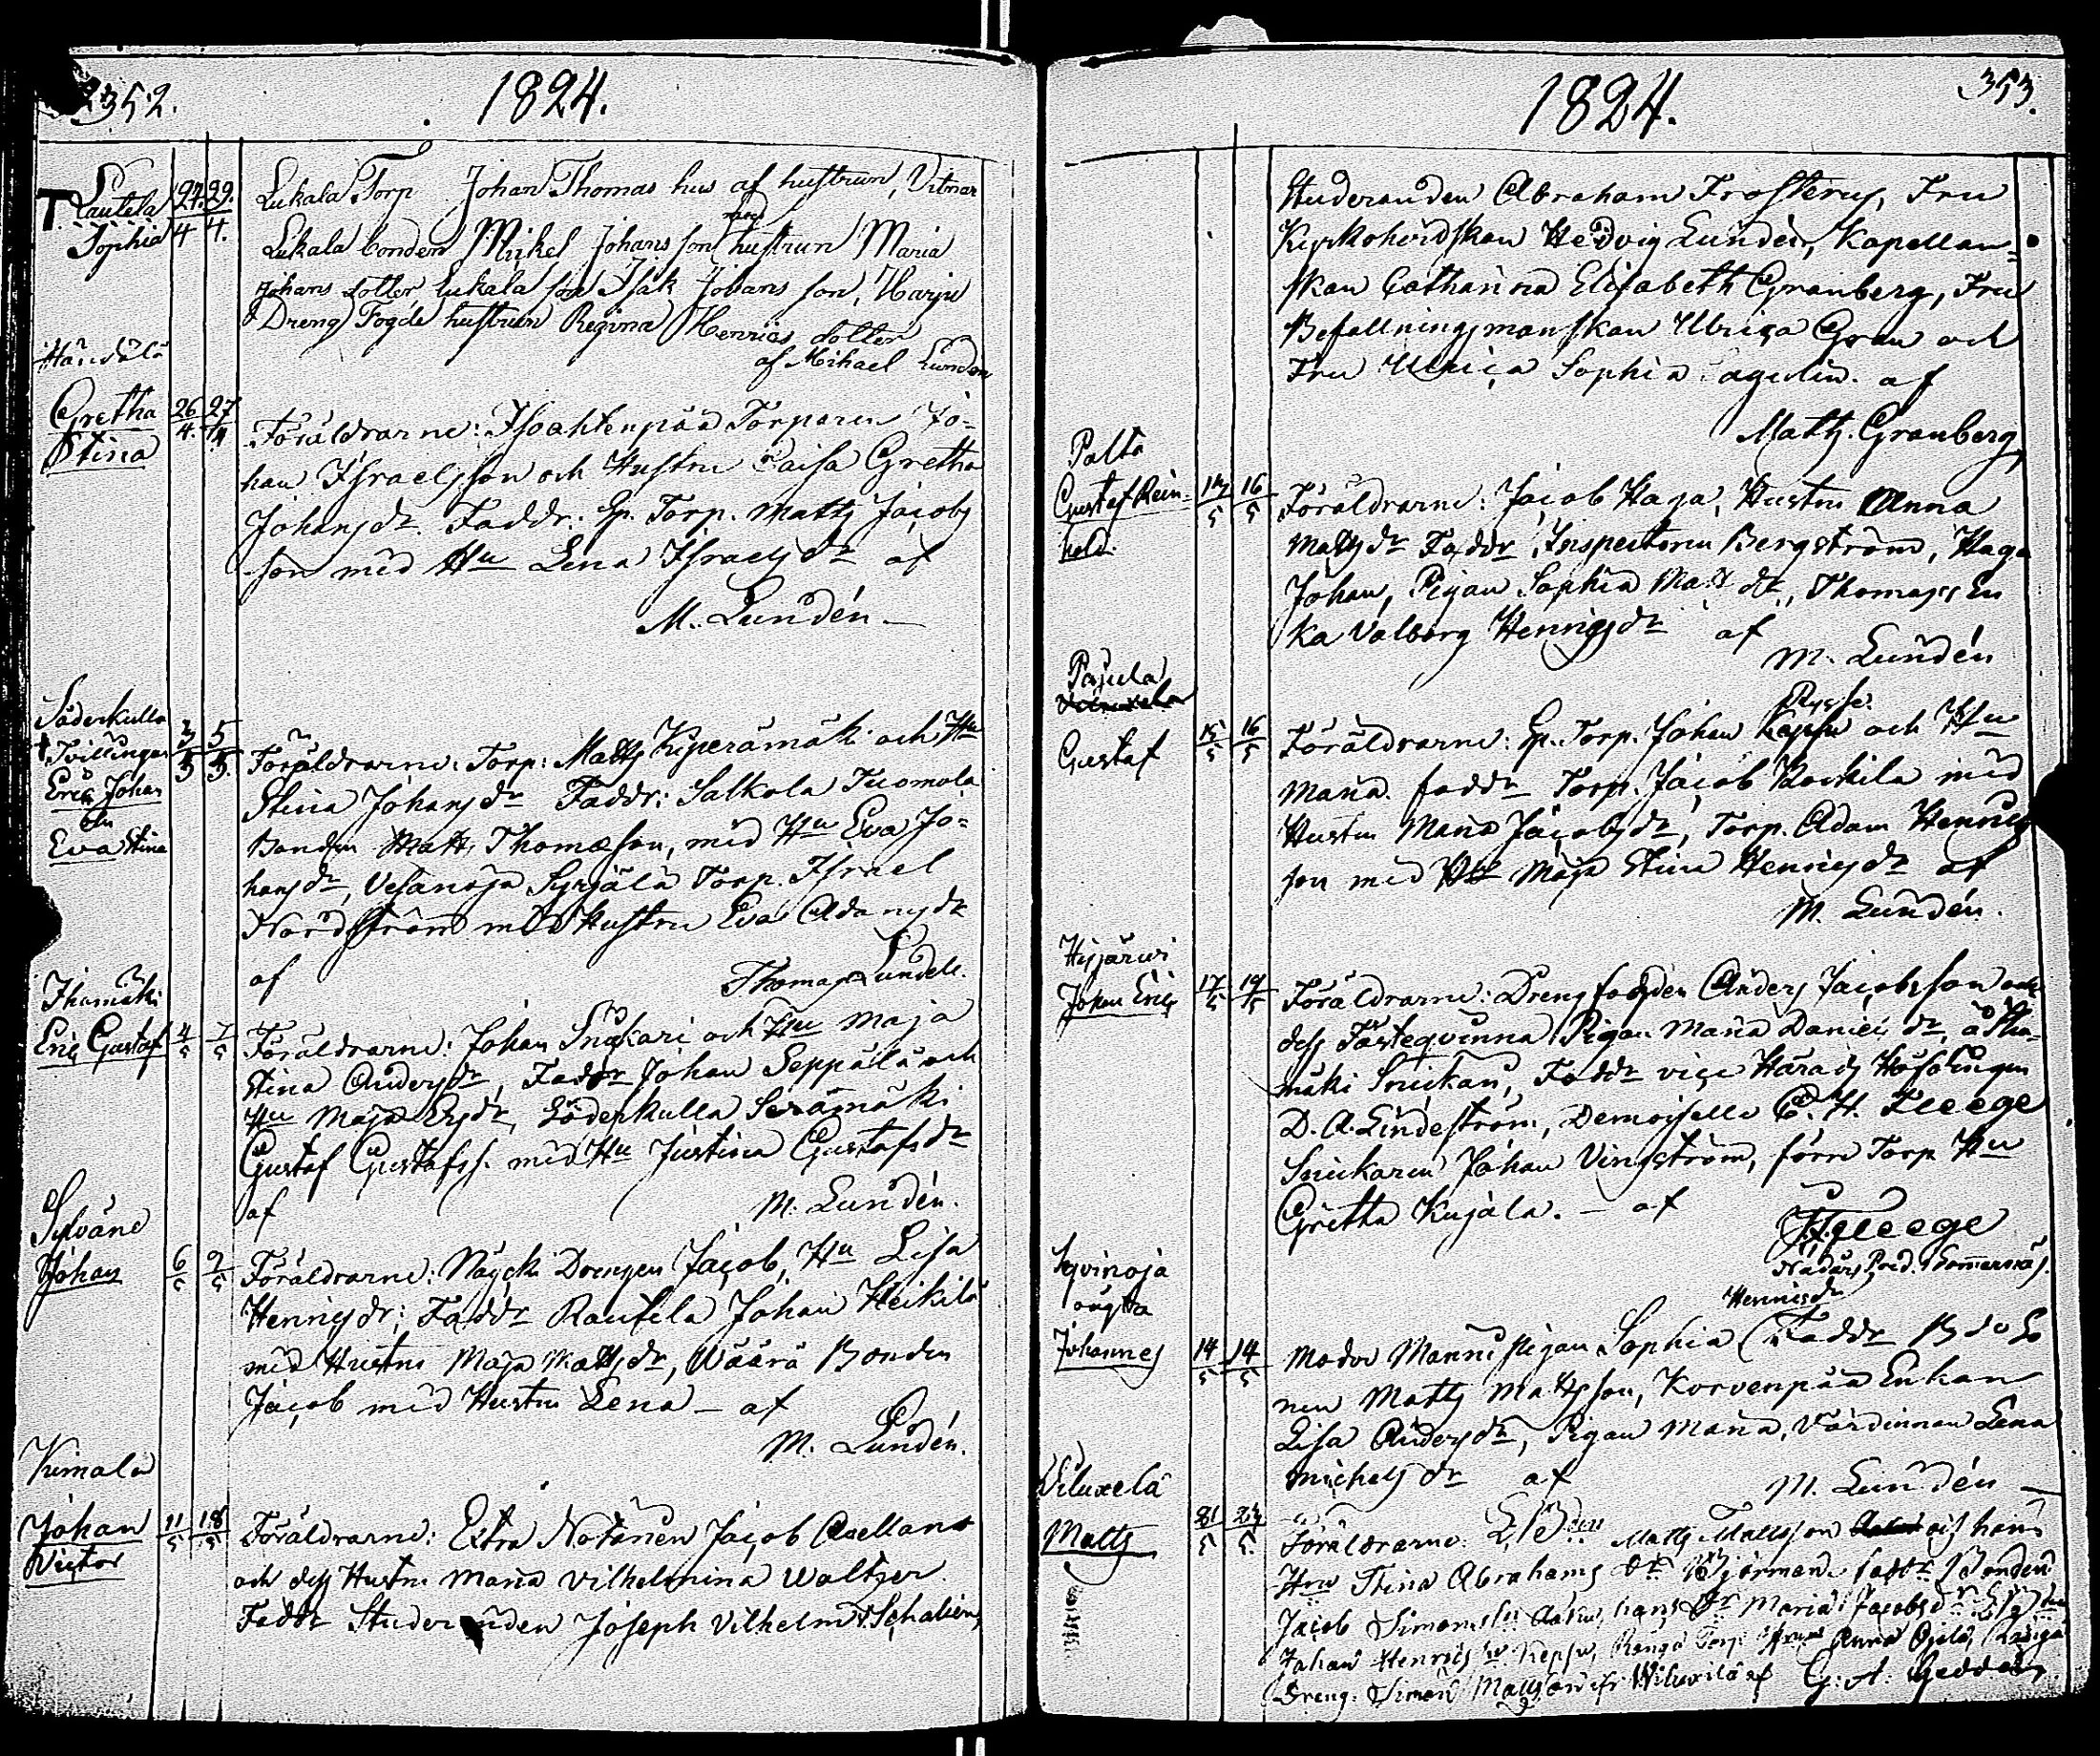 352.
1824.
Rautela
Sophia
27. 29.
4 4.
Lukala Torp Johan Thomas hus af hustrun, Vitnar
Lukala bonden Mickel Johans son med hustrun Maria
Johans dotter Lukala son Isak Johans son, Harju
Dreng Fogde hustrun Regina Henrics dotter
af Michael Lunden
Händälä
Gretha
Stina
26 27
4. 4
Föräldrarne: Isoahtenpää Torparen Jo=
han Israelsson och Hustru Caisa Gretha
Johansdr. Faddr: Sp. Torp. Matts Jacobs
son med Hu Lena Israelsdr af
M. Lundén
Söderkulla
Tvillingar
Eric Johan
och
Eva Stina
3 5
5 5.
Föräldrarne: Torp: Matts Kiperämäki och Hu
Stina Johansdr Faddr: Salkola Tuomola
Bonden Matts Thomasson, med Hu Eva Jo=
hansdr, Vesanoja Syrjälä Torp. Israel
Nordström med Hustru Eva Adamsdr
af Thomas Lundell.
Ihamäki
Eric Gustaf
4 7
5 5
Föräldrarne: Johan Snickari och Hu Maja
Stina Andersdr, Faddr Johan Seppälä och
Hu Maja Ersdr, Söderkulla Serämäki
Gustaf Gustafss. med Hu Justina Gustafsdr
af M. Lundén.
Sylväne
Johan
6 9
5 5
Föräldrarne: Näycki Drengen Jacob, Hu Lisa
Henricsdr; Faddr Rautela Johan Heikilä
med Hustru Maja Mattsdr, Wäärä Bonden
Jacob med Hustru Lena – af
M. Lundén.
Kimala
Johan
Victor
11 18
5 5
Föräldrarne: Extra Notarien Jacob Avellan
och dess Hustru Maria Vilhelmina Waltzer.
Faddr Studeranden Joseph Vilhelm Schalien,
1824.
353.
Studeranden Abraham Frosterus, Fru
Kyrkoherdskan Hedvig Lundén, Kapellan=
skan Catharina Elisabeth Granberg, Fru
Befallningsmanskan Ulrica Gran och
Fru Ulrica Sophia af
Matts. Granberg
Palta
Gustaf Rein=
hold.
14 16
5 5
Föräldrarne: Jacob Haga, Hustru Anna
Mattsdr Faddr, Inspectoren Bergström, Haga
Johan, Pigan Sophia Mattsdr, Thomass En
ka Valborg Henricsdr af
M. Lundén
Pajula
Gustaf
15 16
5 5
Ryssä.
Föräldrarne: Sp. Torp. Johan Keppu och Hu
Maria. faddr Torp. Jacob Kockila med
Hustru Maria Jacobsdr, Torp. Adam Henrics
son med Hu Maja Stina Henricsdr af
M. Lundén.
Hijärwi
Johan Eric
17 19
5 5
Föräldrarne: Drengfogden Anders Jacobsson och
dess Fästeqvinna Pigan Maria Danielsdr, å Iha=
mäki Snickari, Faddr vice Härads Höfdingen
D. A. Lindeström, Demoiselle C. H. Fleege
Snickaren Johan Vingström, förre Torp Hu
Gretha Kujala. – af
Fleege
Nådårs Pred. i Sommernäs.
Johannes
14 14
5 5
Henricsdr
Moder Manni Pigan Sophia Faddr Bdo So
nen Matts Mattsson, Korvenpää Enkan
Lisa Andersdr, Pigan Maria, Värdinnan Lena
Michelsdr af M. Lundén
Viluxela
Matts
21 24
5 5.
Föräldrarne: Matts Mattsson och hans
Hru Stina Abrahams Dr Björman. faddr Bonden
Jacob Simons hans Hr Maria Jacobsdr
Johan Henrics Keppu, Ranga Torp Hrus Anna Ojala,
Dreng. Simon Mattsson ifr Wiluxilä af G. A. Geddda